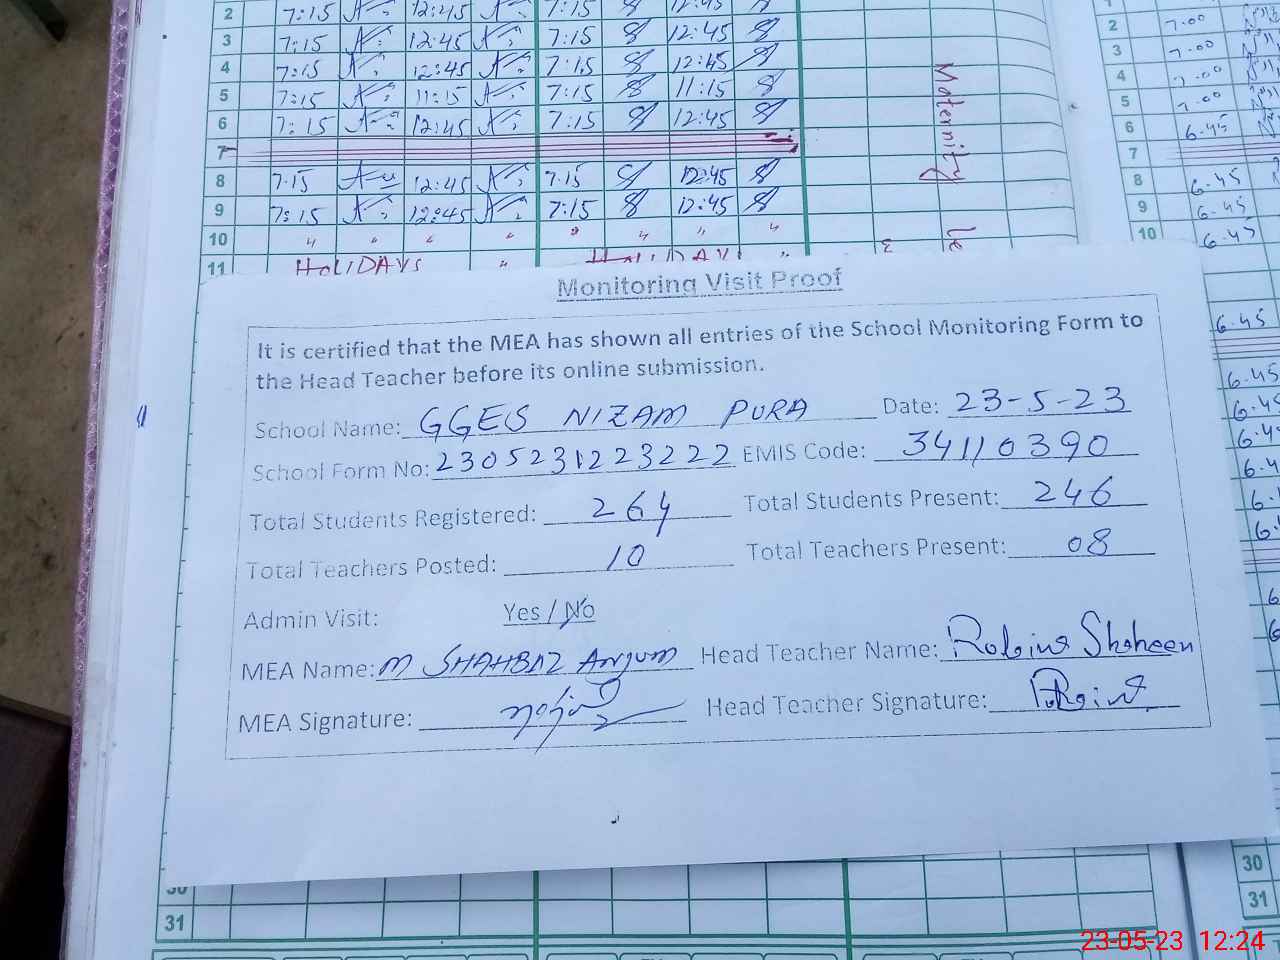 2 7:15 12:45 7:15 12:45
3 7:15 12:45 7:15 12:45
4 7:15 12:45 7:15 12:45
5 7:15 11:15 7:15 11:15
6 7:15 12:45 7:15 12:45
7
8 7.15 12:45 7.15 12:45
9 7:15 12:45 7:15 12:45
10 " " " " " " " "
11 HOLIDAYS " HOLIDAYS "
Maternity Le
2 7.00
3 7.00
4 7.00
5 7.00
6 6.45
7
8 6.45
9 6.45
10 6.45
6.45
6.45
Monitoring Visit Proof
It is certified that the MEA has shown all entries of the School Monitoring Form to
the Head Teacher before its online submission.
School Name: GGES NIZAM PURA Date: 23-5-23
School Form No: 2305231223222 EMIS Code: 34110390
Total Students Registered: 264 Total Students Present: 246
Total Teachers Posted: 10 Total Teachers Present: 08
Admin Visit: Yes / No
MEA Name: M SHAHBAZ Anjum Head Teacher Name: Robina Shaheen
MEA Signature: Head Teacher Signature:
30
31
30
31
23-05-23 12:24